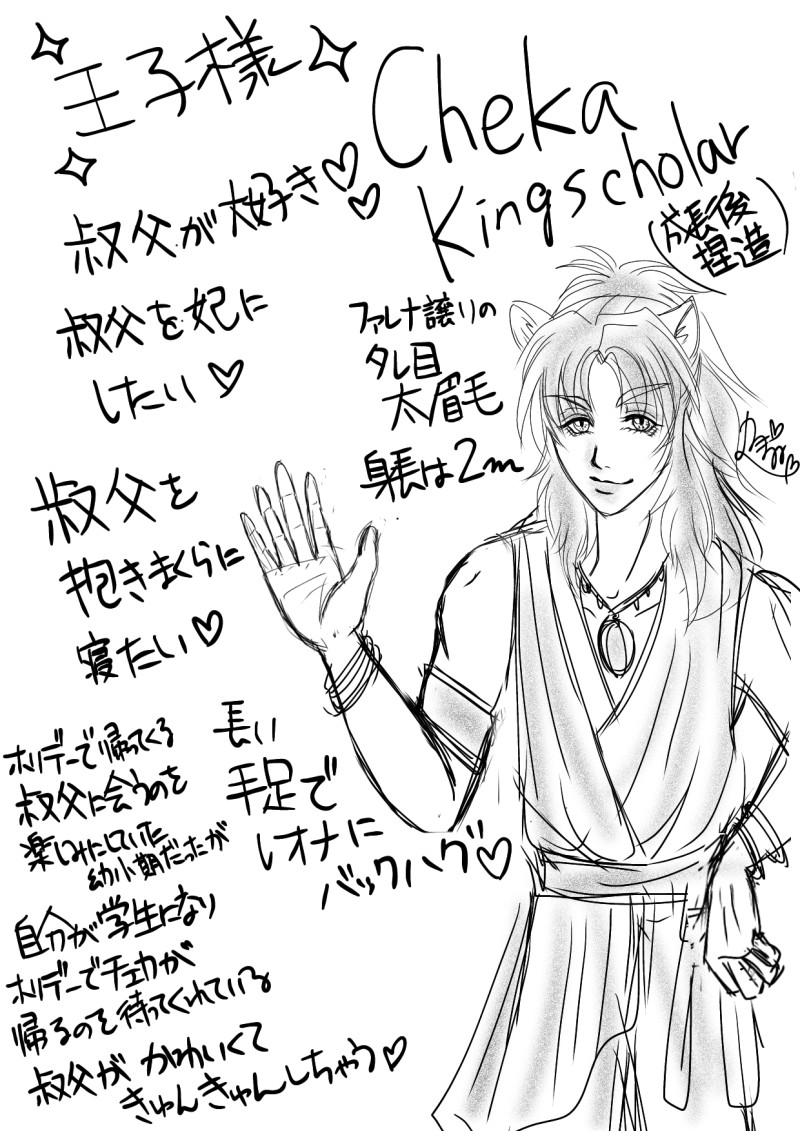 王子様
Cheka
Kingscholar
(成長後
捏造)
叔父が大好き♡♡
叔父を妃に
したい♡
ファレナ譲りの
タレ目
太眉毛
身長は2m
叔父を
抱きまくらに
寝たい♡
長い
手足で
レオナに
バックハグ♡
ホリデーで帰ってくる
叔父に会うのを
楽しみにしていた
幼小期だったが
自分が学生になり
ホリデーでチェカが
帰るのを待ってくれている
叔父がかわいくて
きゅんきゅんしちゃう♡